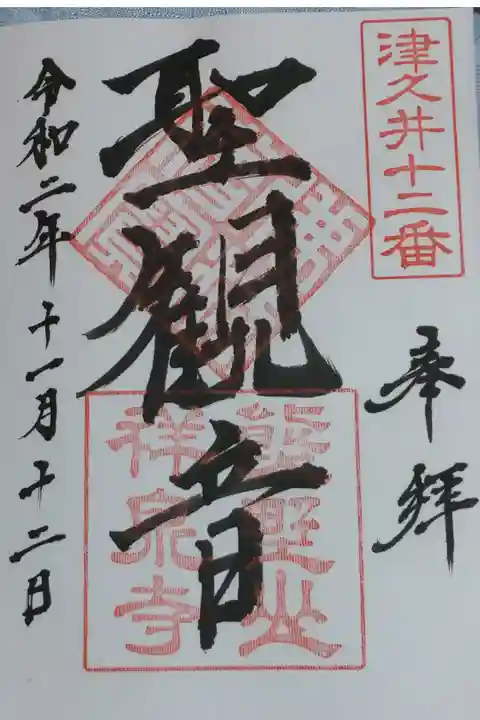 津久井十二番
奉拜
聖観音
熊野山
祥泉寺
令和二年十一月十二日